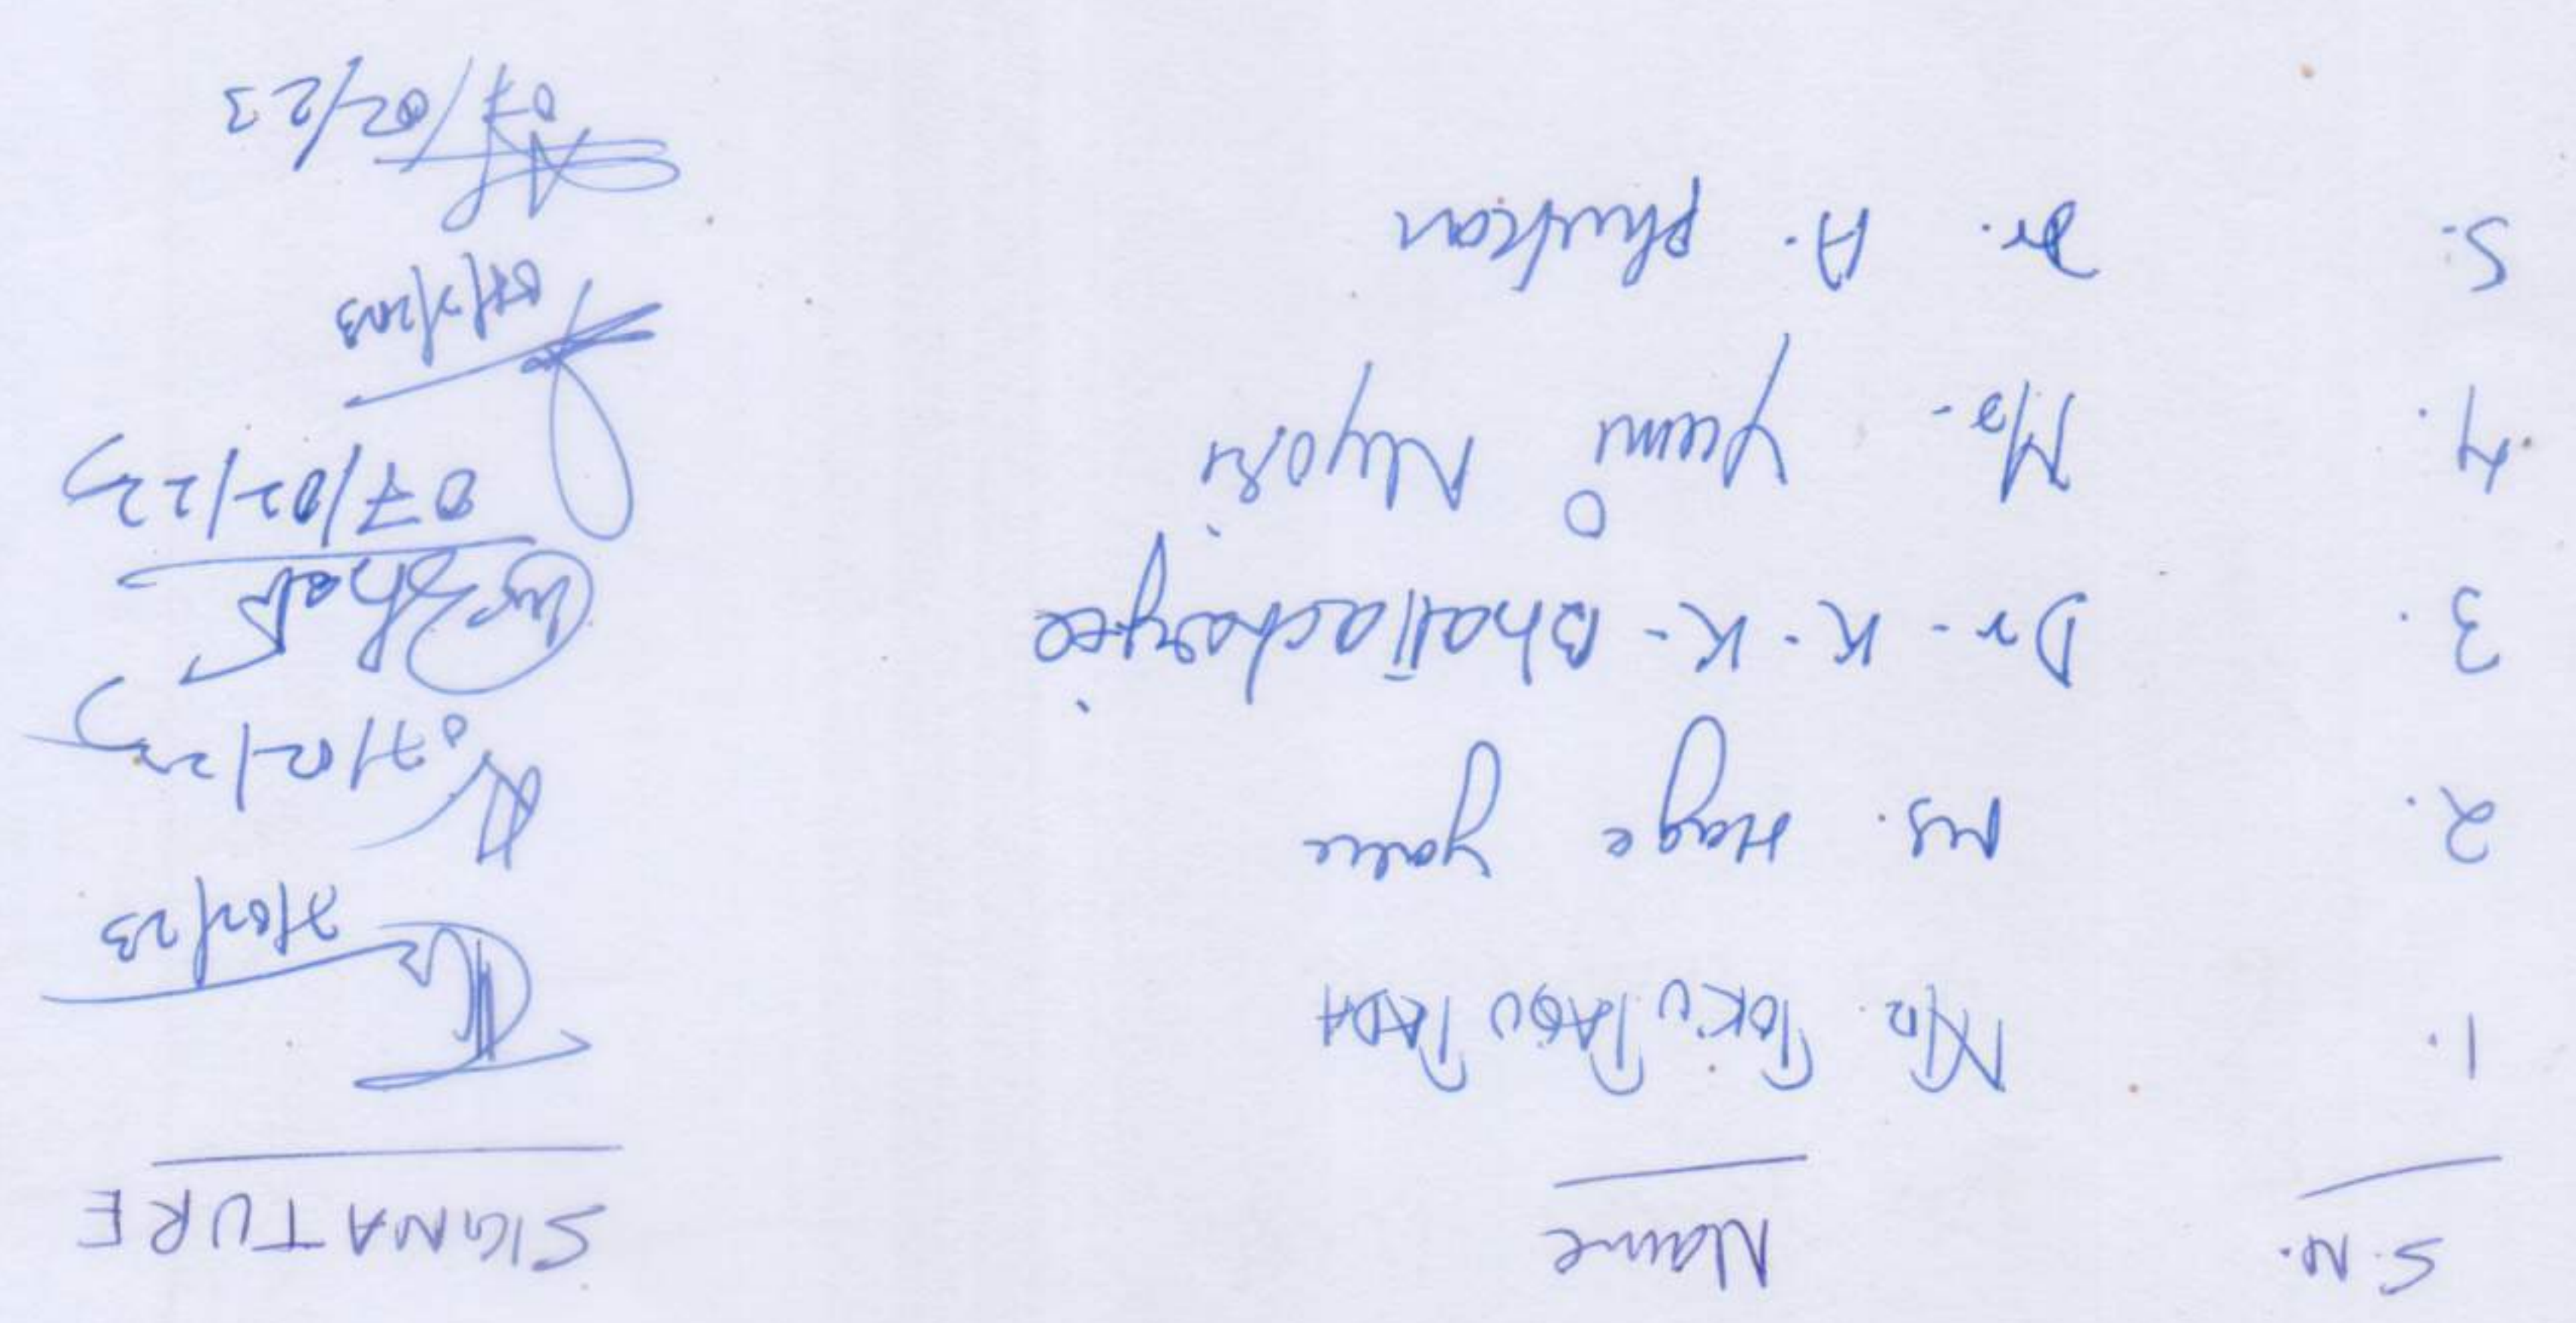 S.N. Name SIGNATURE
1. TOKU TAGU TADA 7/02/23
2. Ms. Hage 07/02/23
3. Dr. K. K. Bhattacharjee 07/02/23
4. Yami
5. Dr. A. Phukan 07/02/23